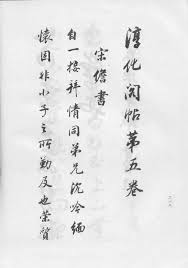 淳化阁帖第五卷
宋儋书
自一接拜情同弟兄沉吟缅
怀固非小子之所勤及也荣贺